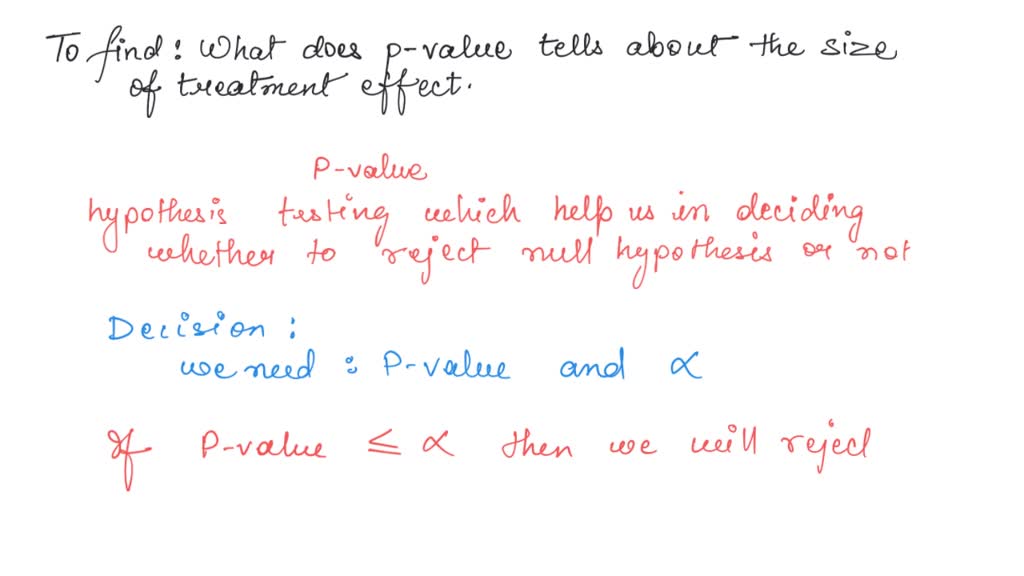 To find: What does p-value tells about the size
of treatment effect.
P-value
hypothesis testing which help us in deciding
whether to reject null hypothesis or not
Decision:
we need: P-value and α
If P-value ≤ α then we will reject